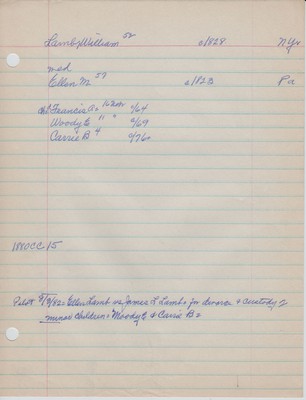 Lamb, William 52 a/828 N.Y.
med
Ellen M 57 a/823 Pa
ch Francis A = 16 4/64
Woody E 11 " 9/69
Carrie B 4 9/76
1880CC 15
9/9/82 = Ellen Lamb vs James L Lamb = for divorce & custody of
minor children = Woody E & Carrie B =